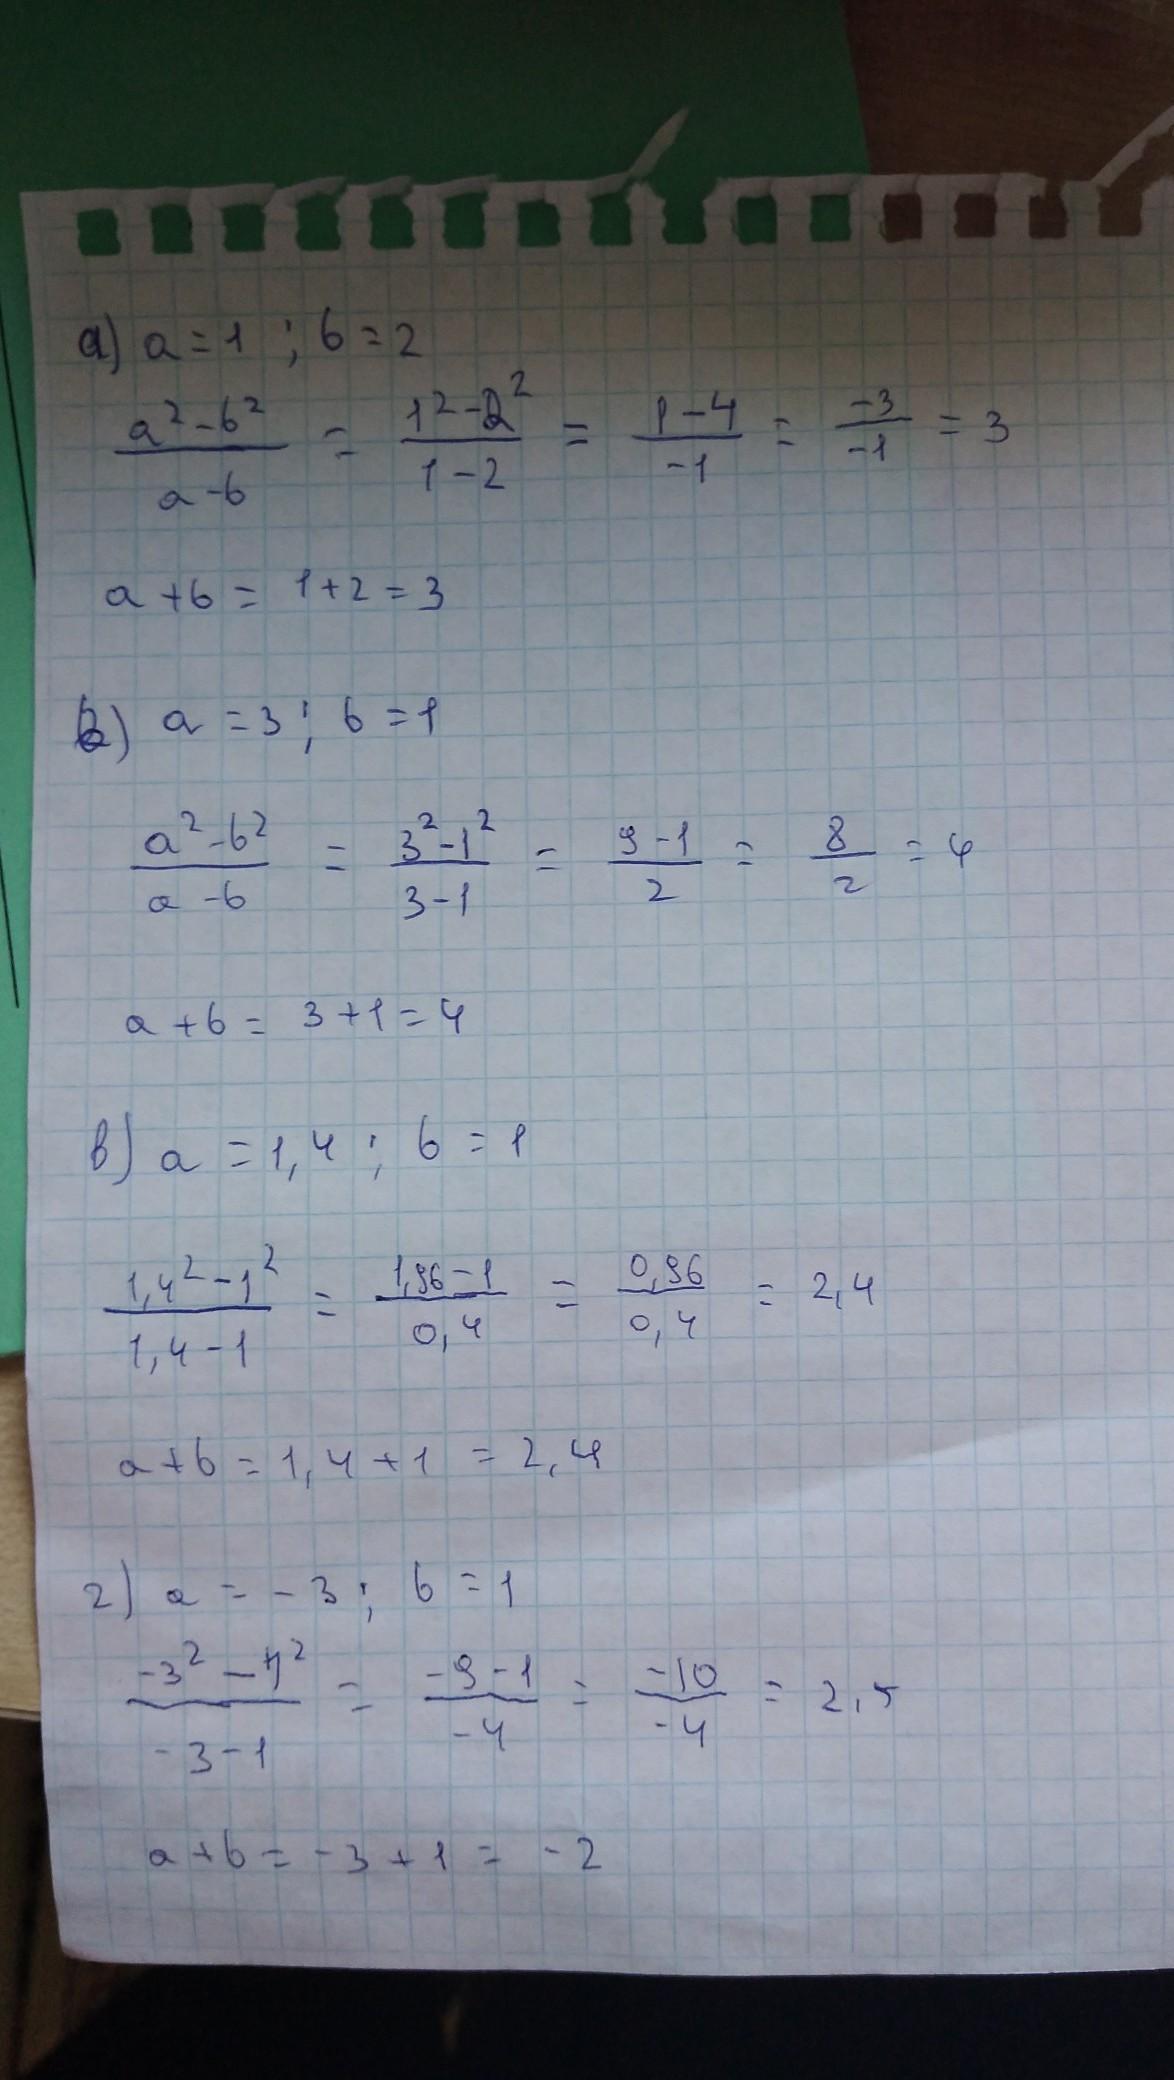 а) a = 1 ; b = 2
(a² - b²)/(a - b) = (1² - 2²)/(1 - 2) = (1 - 4)/(-1) = (-3)/(-1) = 3
a + b = 1 + 2 = 3
б) a = 3 ; b = 1
(a² - b²)/(a - b) = (3² - 1²)/(3 - 1) = (9 - 1)/2 = 8/2 = 4
a + b = 3 + 1 = 4
в) a = 1,4 ; b = 1
(1,4² - 1²)/(1,4 - 1) = (1,96 - 1)/0,4 = 0,96/0,4 = 2,4
a + b = 1,4 + 1 = 2,4
г) a = -3 ; b = 1
(-3² - 1²)/(-3 - 1) = (-9 - 1)/(-4) = (-10)/(-4) = 2,5
a + b = -3 + 1 = -2